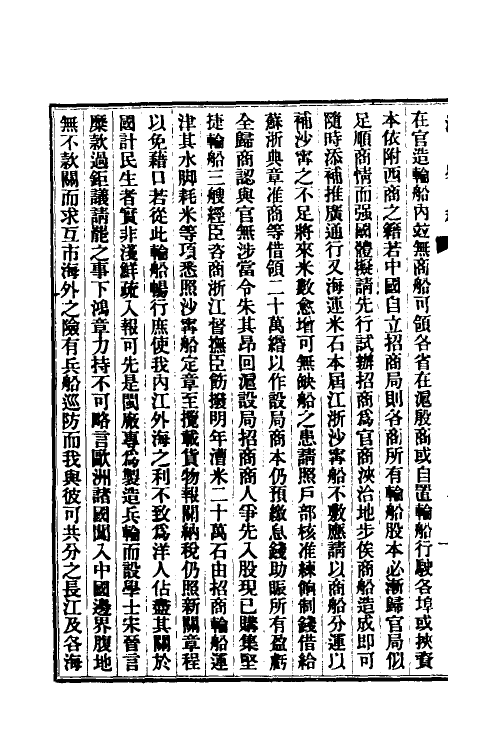 在官造輪船內並無商船可領各省在滬殷商或自置輪船行駛各埠或挾資
本依附西商之籍若中國自立招商局則各商所有輪船股本必漸歸官局似
足順商情而强國體擬請先行試辦招商為官商浹洽地步俟商船造成即可
隨時添補推廣通行又海運米石本屆江浙沙甯船不敷應請以商船分運以
補沙甯之不足將來米數愈增可無缺船之患請照戶部核准練餉制錢借給
蘇浙典章准商等借領二十萬緡以作設局商本仍預繳息錢助賑所有盈虧
全歸商認與官無涉當令朱其昂回滬設局招商商人爭先入股現已購集堅
捷輪船三艘經臣咨商浙江督撫臣飭撥明年漕米二十萬石由招商輪船運
津其水脚耗米等項悉照沙甯船定章至攬載貨物報關納稅仍照新關章程
以免藉口若從此輪船暢行庶使我內江外海之利不致為洋人佔盡其關於
國計民生者實非淺鮮疏入報可先是閩廠專為製造兵輪而設學士宋晉言
糜款過鉅議請罷之事下鴻章力持不可略言歐洲諸國闖入中國邊界腹地
無不款關而求互市海外之險有兵船巡防而我與彼可共分之長江及各海